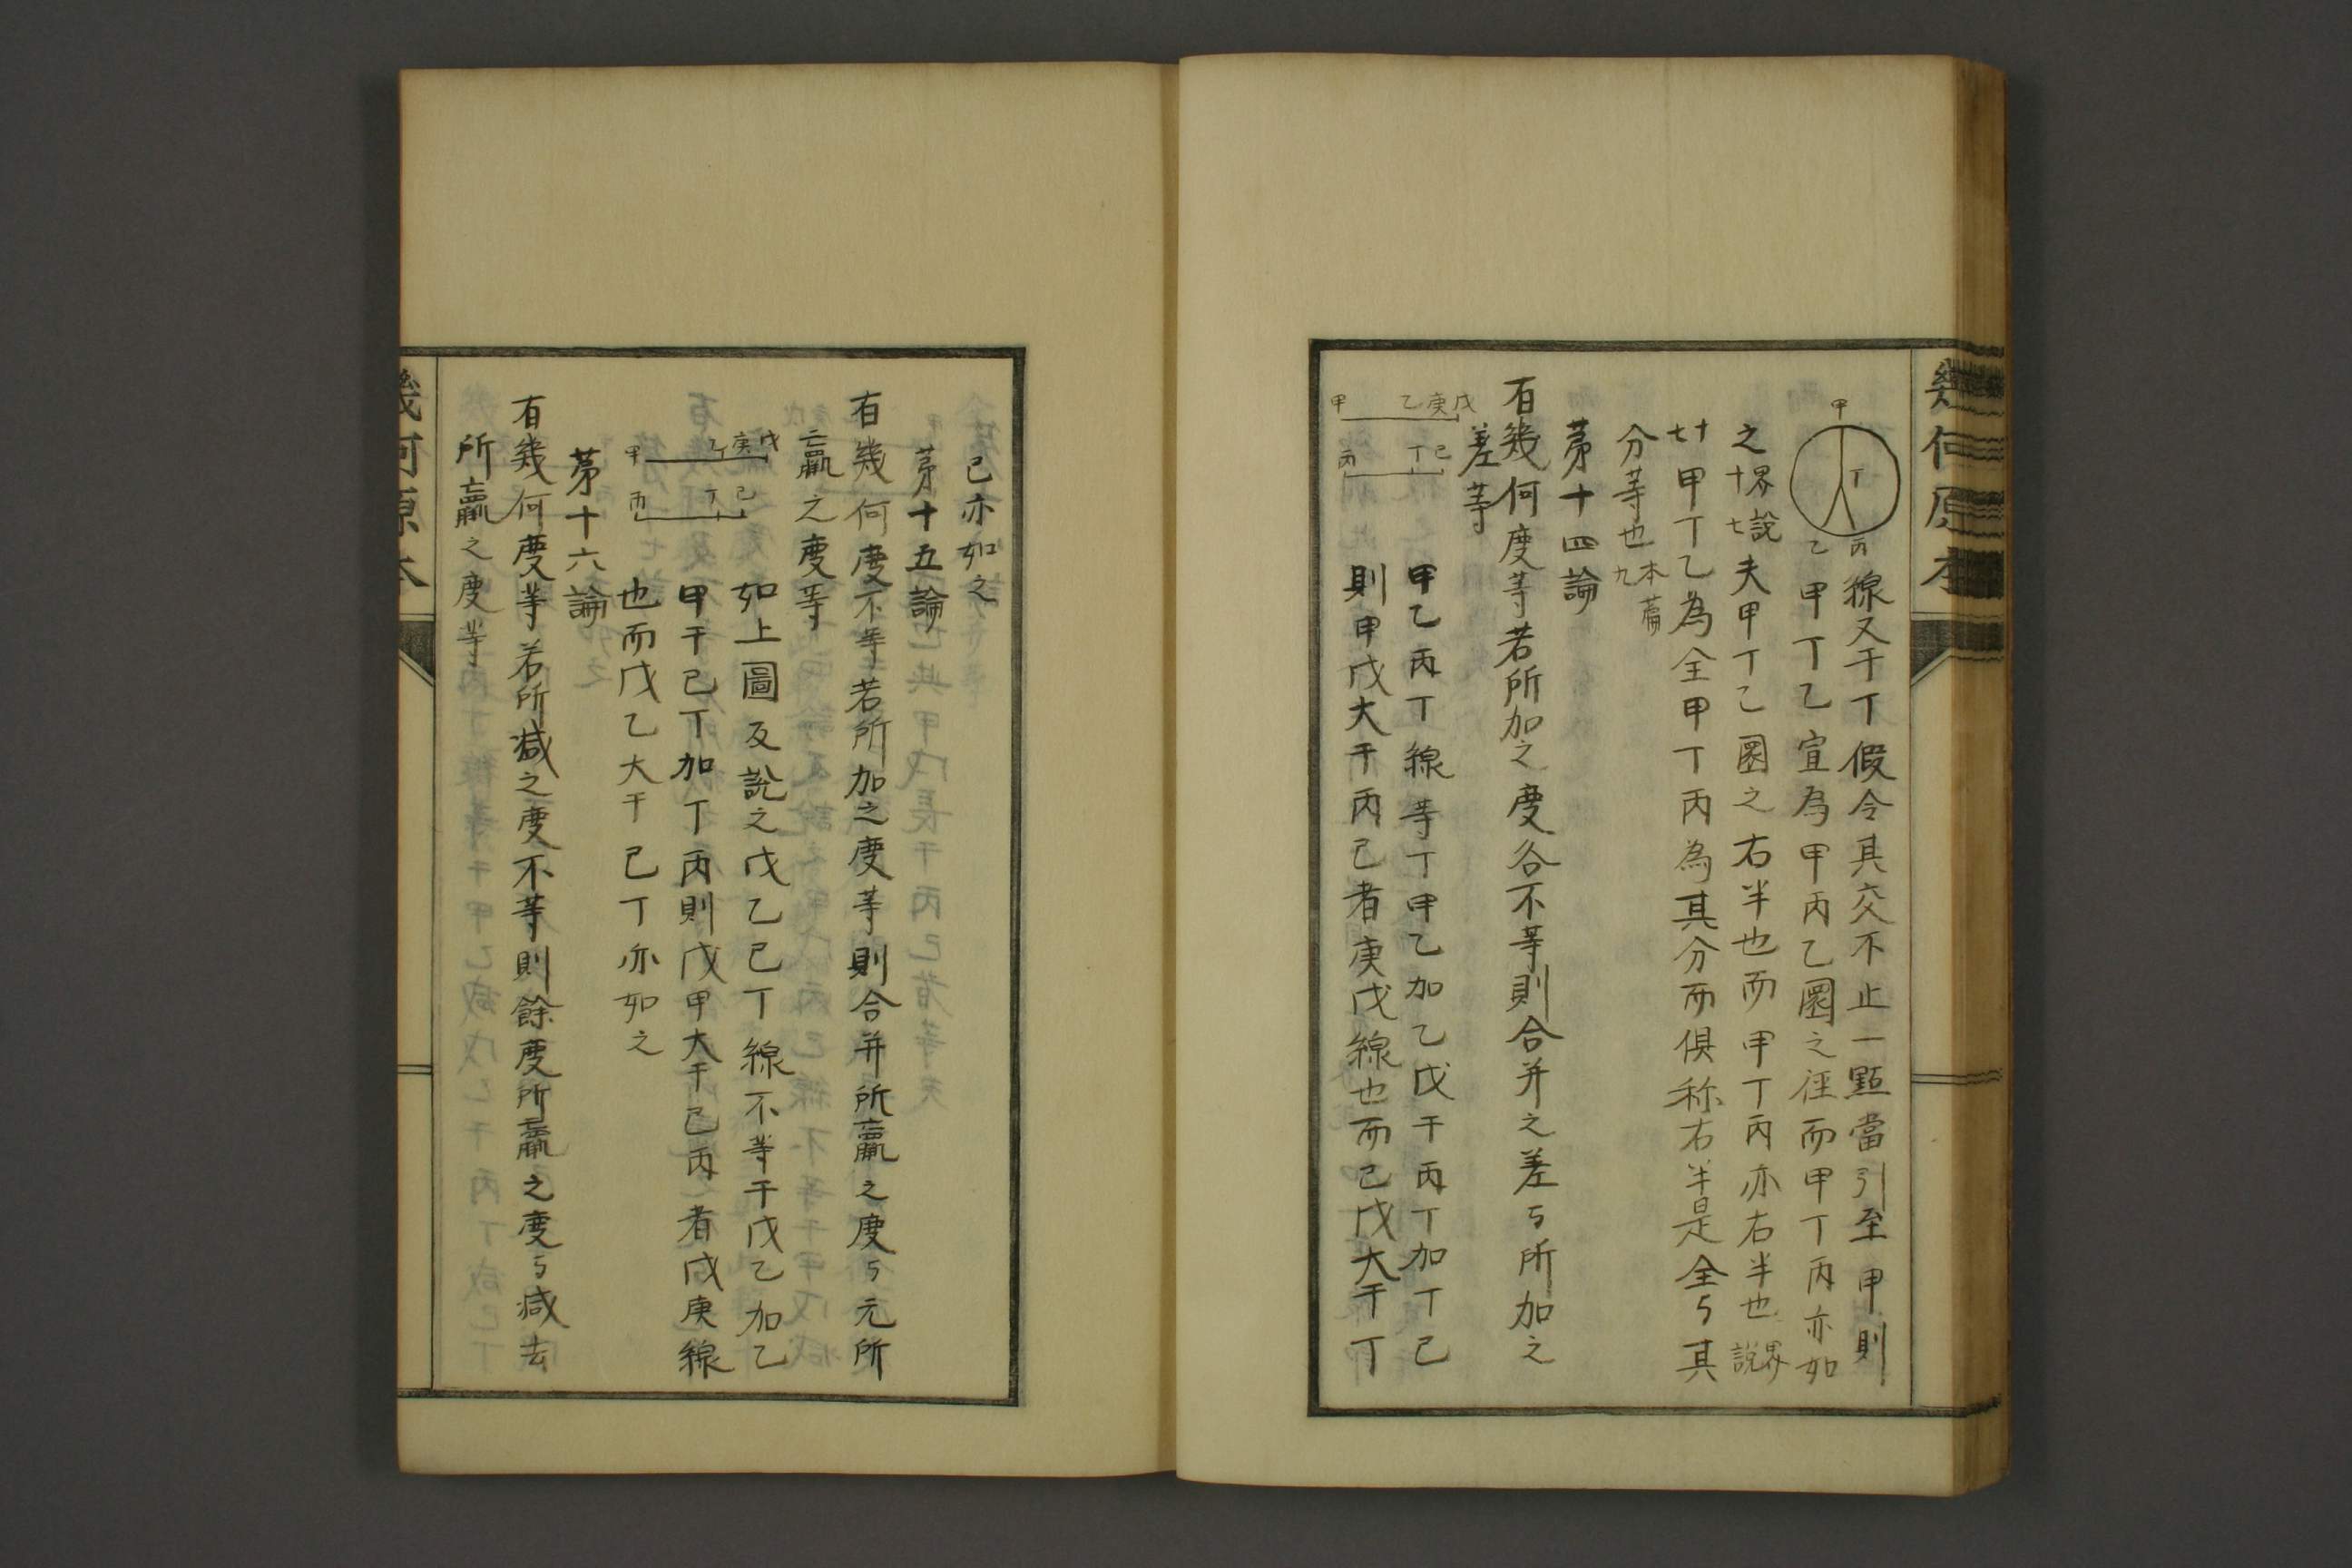 幾何原本
甲
丁
乙 丙
線又于丁假令其交不止一點當引至甲則
甲丁乙宣為甲丙乙圜之徑而甲丁丙亦如
之界說十七夫甲丁乙圜之右半也而甲丁丙亦右半也界說
十七甲丁乙為全甲丁丙為其分而俱称右半是全与其
分等也本篇九
第十四論
有幾何度等若所加之度各不等則合并之差与所加之
差等
甲 乙庚戊
丙 丁己
甲乙丙丁線等丁甲乙加乙戊于丙丁加丁己
則甲戊大于丙己者庚戊線也而己戊大于丁
己亦如之
第十五論
有幾何度不等若所加之度等則合并所贏之度与元所
贏之度等
甲 乙庚戊
丙 丁己
如上圖反說之戊乙己丁線不等于戊乙加乙
甲于己丁加丁丙則戊甲大于己丙者戊庚線
也而戊乙大于己丁亦如之
第十六論
有幾何度等若所減之度不等則餘度所贏之度与減去
所贏之度等
幾何原本